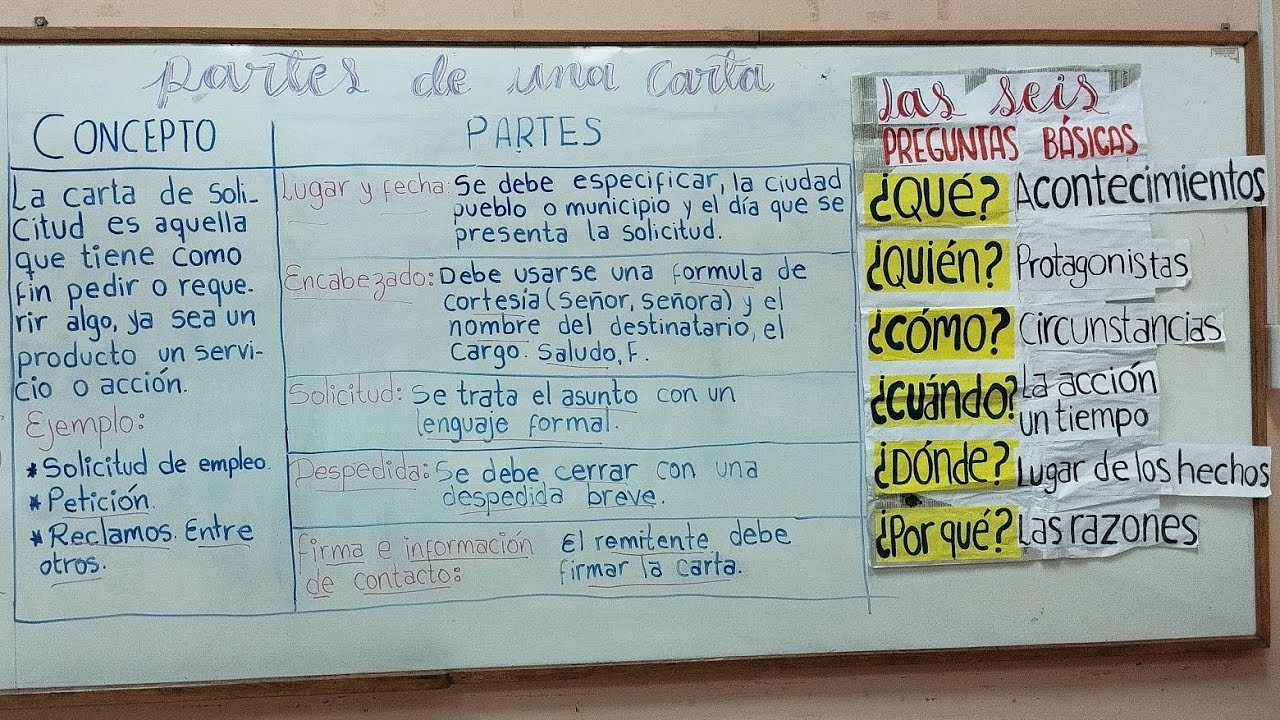 partes de una carta
CONCEPTO
La carta de soli-
citud es aquella
que tiene como
fin pedir o reque-
rir algo, ya sea un
producto un servi-
cio o acción.
Ejemplo:
* Solicitud de empleo.
* Petición.
* Reclamos. Entre
otros.
PARTES
Lugar y fecha: Se debe especificar, la ciudad
pueblo o municipio y el día que se
presenta la solicitud.
Encabezado: Debe usarse una formula de
cortesía (señor, señora) y el
nombre del destinatario, el
cargo. Saludo, F.
Solicitud: Se trata el asunto con un
lenguaje formal.
Despedida: Se debe cerrar con una
despedida breve.
Firma e información El remitente debe
de contacto: firmar la carta.
Las seis
PREGUNTAS BÁSICAS
¿QUÉ? Acontecimientos
¿QUIÉN? Protagonistas
¿CÓMO? Circunstancias
¿CUÁNDO? La acción
un tiempo
¿DÓNDE? Lugar de los hechos
¿Por qué? Las razones